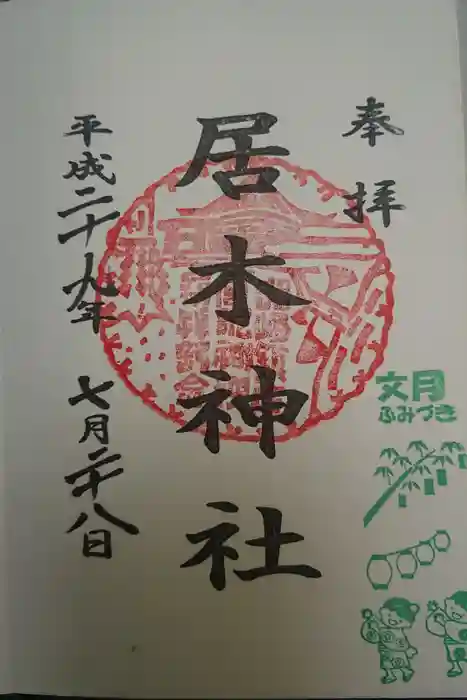 奉拝
居木神社
平成二十九年 七月二十八日
文月
ふみづき